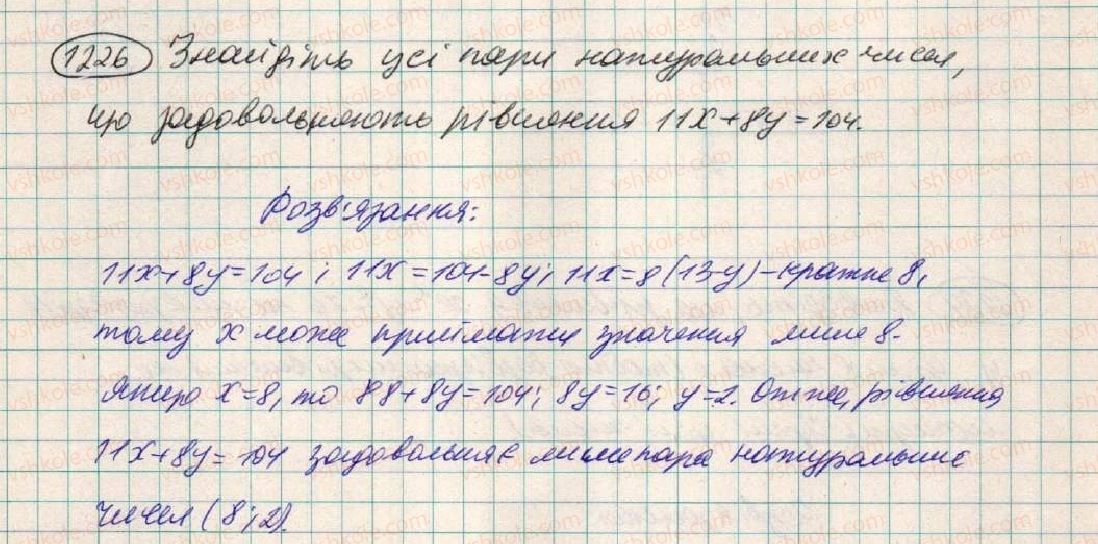 1226 Знайдіть усі пари натуральних чисел,
що задовольняють рівняння 11x+8y=104.
Розв'язання:
11x+8y=104; 11x=104-8y; 11x=8(13-y) - кратне 8,
тому x може приймати значення лише 8.
Якщо x=8, то 88+8y=104; 8y=16; y=2. Отже, рівняння
11x+8y=104 задовольняє лише пара натуральних
чисел (8;2).